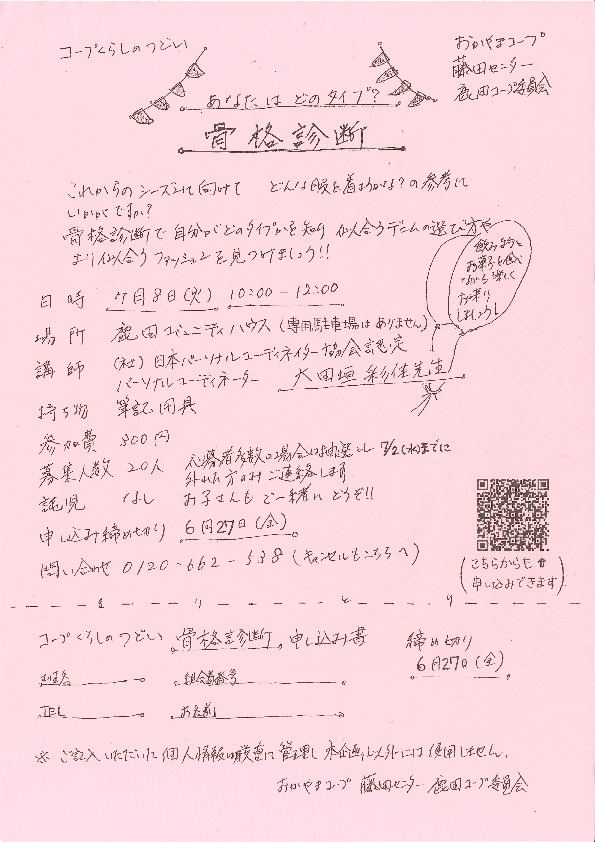 コープくらしのつどい
おかやまコープ
藤田センター
鹿田コープ委員会
あなたは どのタイプ?
骨格診断
これからの シーズンに向けて どんな服を着ようかな?の参考に
いかがですか?
骨格診断で自分がどのタイプかを知り 似合うデニムの選び方や
より似合うファッションを見つけましょう!!
飲みものと
お菓子を食べ
ながら 楽しく
お津り
しましょう
日時 7月8日(火) 10:00-12:00
場所 鹿田コミュニティハウス (専用駐車場はありません)
講師 (社)日本パーソナルコーディネイター協会認定
パーソナルコーディネーター 大田垣 彩佳先生
持ち物 筆記用具
参加費 300円
募集人数 20人 応募者多数の場合は抽選とし 7/2(水)までに
外れた方のみ ご連絡します
託児 なし お子さんも ご一緒に どうぞ!!
申し込み締め切り 6月27日(金)
問い合わせ 0120-662-538 (キャンセルもこちらへ)
(こちらからも⇧
申し込みできます)
きりとり
コープくらしのつどい 骨格診断 申し込み書 締め切り
6月27日(金)
班名 組合員番号
TEL お名前
※ ご記入いただいた個人情報は厳重に管理し 本企画以外には使用しません。
おかやまコープ 藤田センター 鹿田コープ委員会